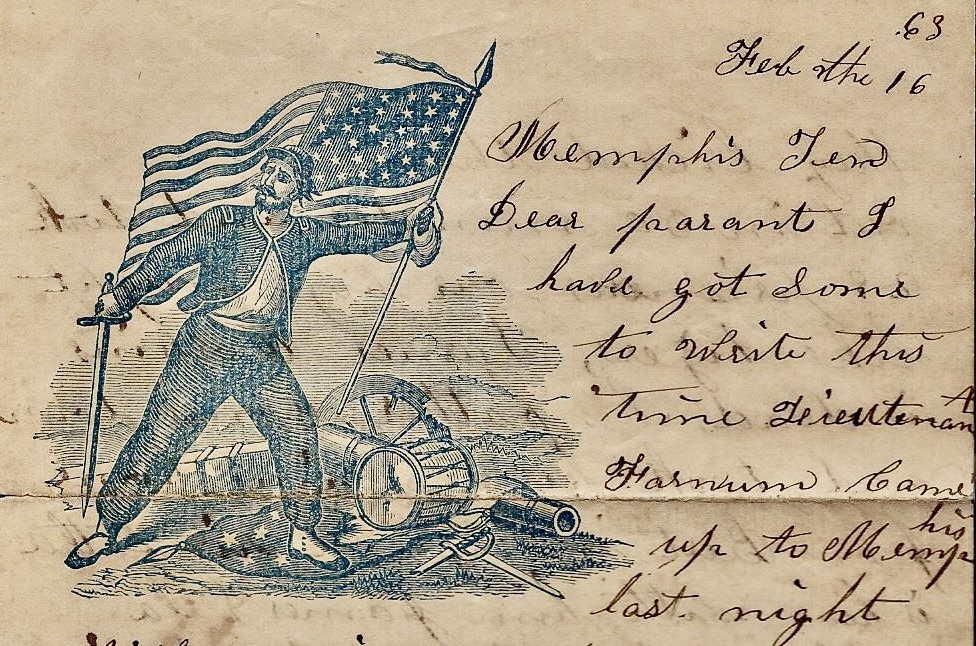 .63
Feb the 16
Memphis Tenn
Dear parant I
have got some
to write this
time Lieutenant
Farnum Came
up to Memphis
last night